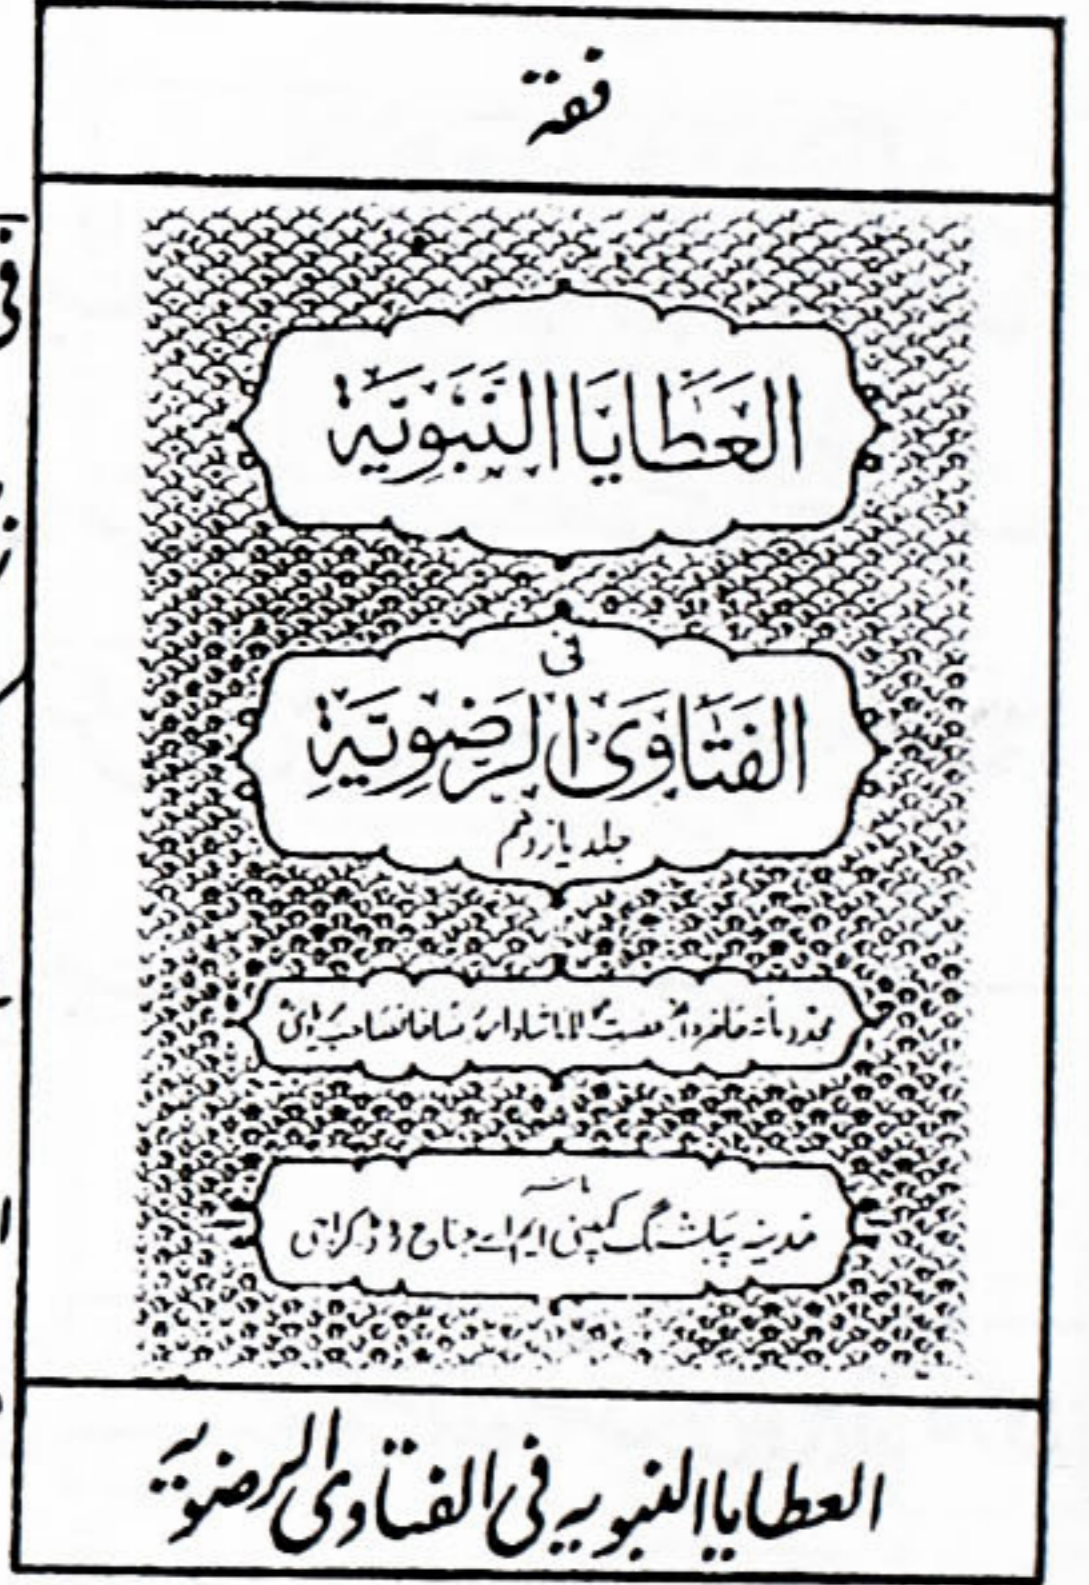 فقہ
العَطَايَا النَّبَوِيَّة
فی
الفَتَاوَى الرَّضَوِيَّةِ
جلد یازدہم
مجدد مائۃ حاضرہ شاہ احمد رضا خانصاحب
ناشر
مدینہ پبلشنگ کمپنی ایم اے جناح روڈ کراچی
العطایا النبویہ فی الفتاوی الرضویہ